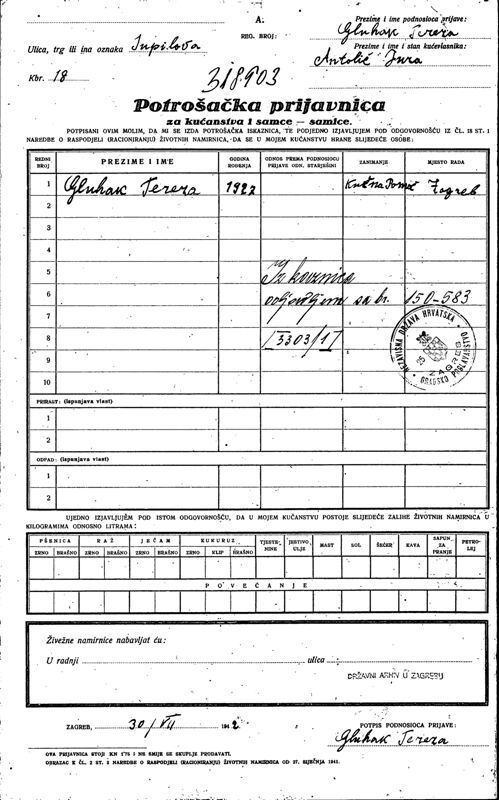 A.
REG. BROJ:
318903
Ulica, trg ili ina oznaka Supilova
Kbr. 18
Prezime i ime podnosioca prijave:
Gluhak Tereza
Prezime i ime i stan kućevlasnika:
Antolić Jura
Potrošačka prijavnica
za kućanstva i samce – samice.
POTPISANI OVIM MOLIM, DA MI SE IZDA POTROŠAČKA ISKAZNICA, TE PODJEDNO IZJAVLJUJEM POD ODGOVORNOŠĆU IZ ČL. 18 ST. 1
NAREDBE O RASPODJELI (RACIONIRANJU) ŽIVOTNIH NAMIRNICA, DA SE U MOJEM KUĆANSTVU HRANE SLIJEDEĆE OSOBE:
REDNI BROJ PREZIME I IME GODINA ROĐENJA ODNOS PREMA PODNOSIOCU PRIJAVE ODN. STARJEŠINI ZANIMANJE MJESTO RADA
1 Gluhak Tereza 1922 Kućna Pomoć Zagreb
2
3
4
5 Iskaznica
6 odjavljen sa br. 150-583
7
8 I3303/17
9
10
NEZAVISNA DRŽAVA HRVATSKA
GRADSKO POGLAVARSTVO
ZAGREB
PRIRAST: (ispunjava vlast)
1
2
OTPAD: (ispunjava vlast)
1
2
UJEDNO IZJAVLJUJEM POD ISTOM ODGOVORNOŠĆU, DA U MOJEM KUĆANSTVU POSTOJE SLIJEDEĆE ZALIHE ŽIVOTNIH NAMIRNICA U
KILOGRAMIMA ODNOSNO LITRAMA:
PŠENICA RAŽ JEČAM KUKURUZ TJESTENINE JESTIVO ULJE MAST SOL ŠEĆER KAVA SAPUN ZA PRANJE PETROLEJ
ZRNO BRAŠNO ZRNO BRAŠNO ZRNO BRAŠNO ZRNO KLIP BRAŠNO
POVEĆANJE
Živežne namirnice nabavljat ću:
U radnji ulica
DRŽAVNI ARHIV U ZAGREBU
ZAGREB, 30/VII 1942
POTPIS PODNOSIOCA PRIJAVE:
Gluhak Tereza
OVA PRIJAVNICA STOJI KN 1'75 I NE SMIJE SE SKUPLJE PRODAVATI.
OBRAZAC K ČL. 2 ST. 2 NAREDBE O RASPODJELI (RACIONIRANJU) ŽIVOTNIH NAMIRNICA OD 27. SIJEČNJA 1941.